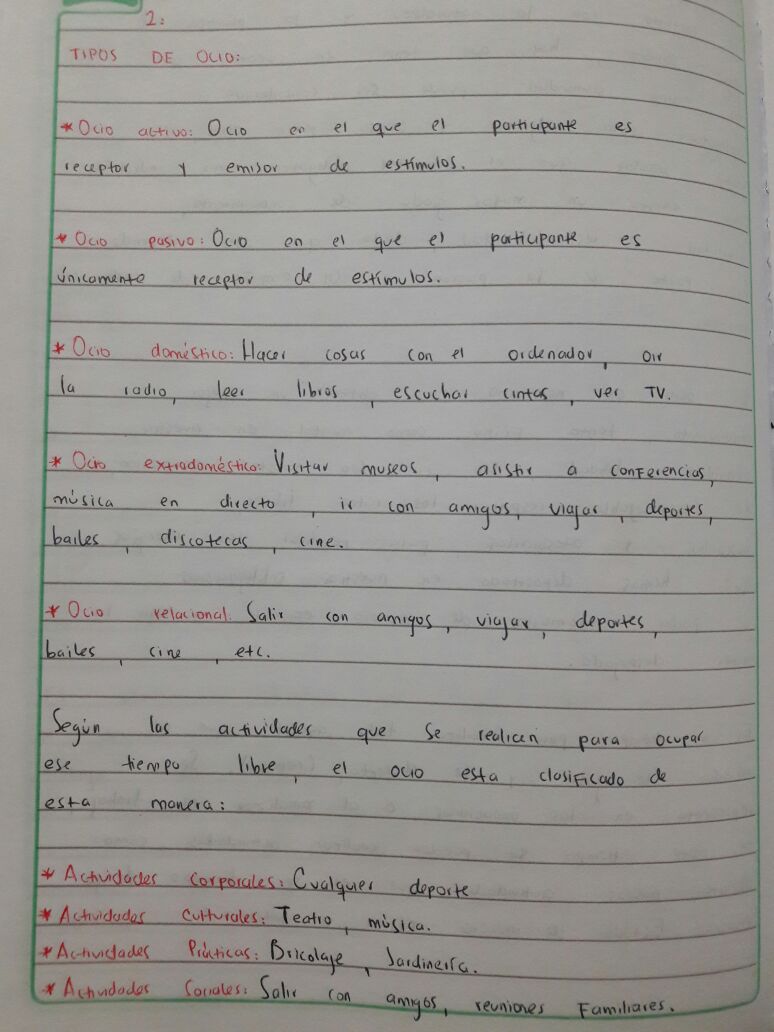 2:
TIPOS DE OCIO:
* Ocio activo: Ocio en el que el participante es
receptor y emisor de estímulos.
* Ocio pasivo: Ocio en el que el participante es
únicamente receptor de estímulos.
* Ocio doméstico: Hacer cosas con el ordenador, oir
la radio, leer libros, escuchar cintas, ver TV.
* Ocio extradoméstico: Visitar museos, asistir a conferencias,
música en directo, ir con amigos, viajar, deportes,
bailes, discotecas, cine.
* Ocio relacional: Salir con amigos, viajar, deportes,
bailes, cine, etc.
Según las actividades que se realicen para ocupar
ese tiempo libre, el ocio esta clasificado de
esta manera:
* Actividades corporales: Cualquier deporte
* Actividades culturales: Teatro, música.
* Actividades Prácticas: Bricolaje, Jardinería.
* Actividades Sociales: Salir con amigos, reuniones Familiares.